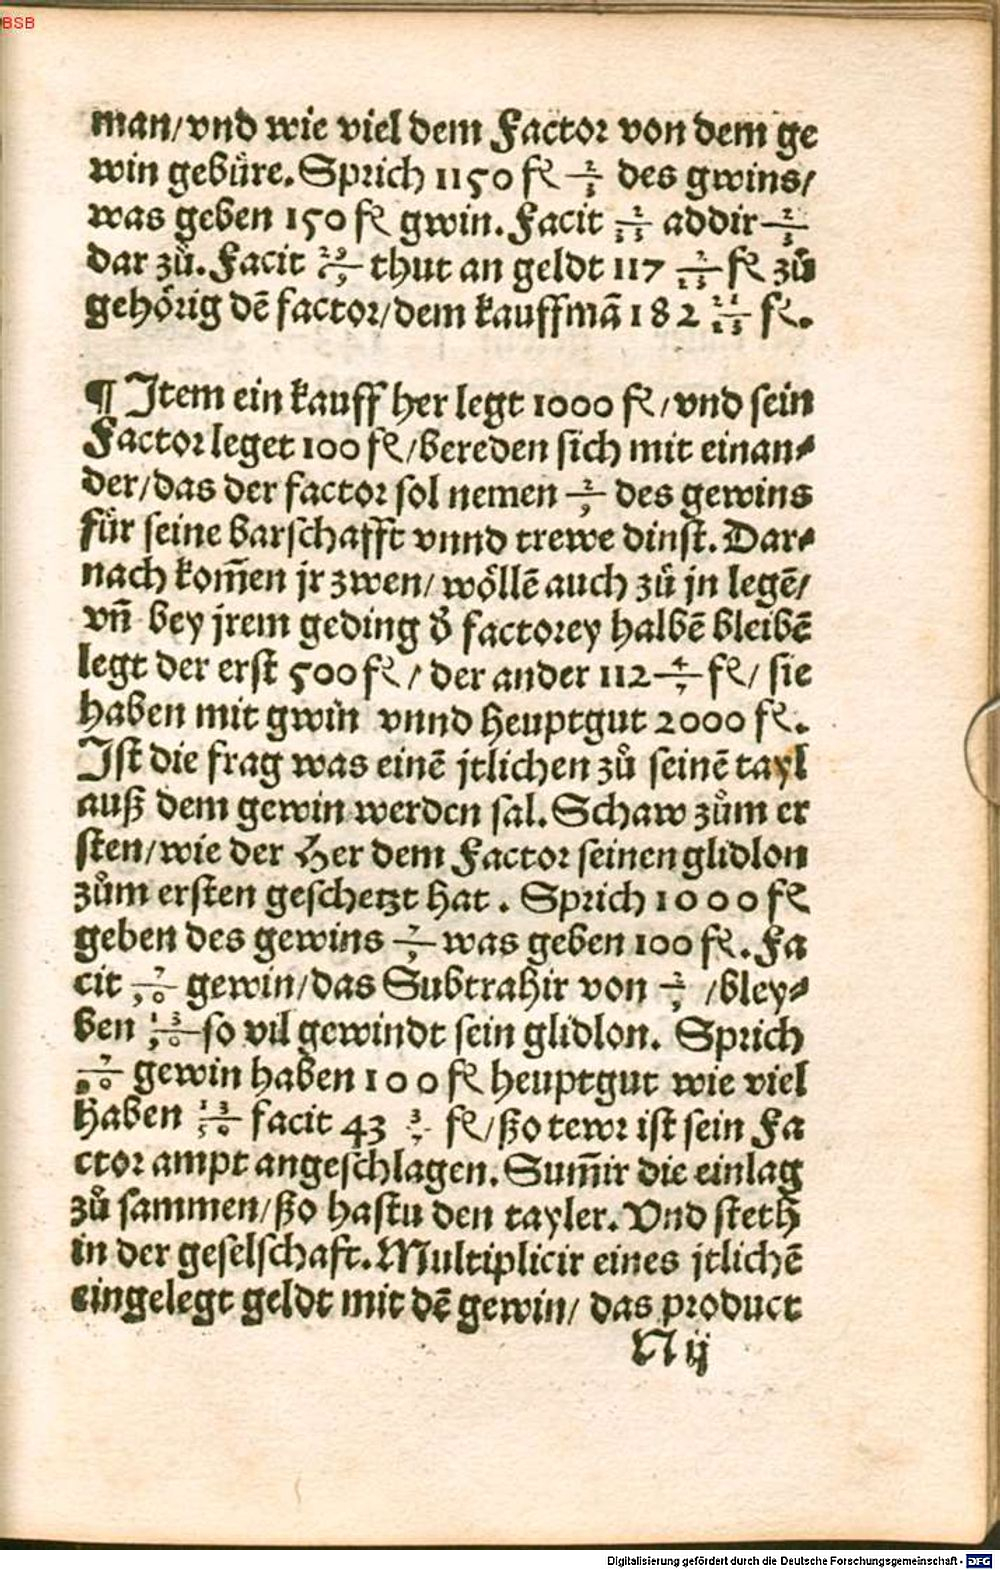 BSB
man/vnd wie viel dem Factor von dem ge
win gebüre. Sprich 1150 fl 2/3 des gwins/
was geben 150 fl gwin. Facit 2/23 addir 2/
dar zů. Facit thut an geldt 117 fl zů
gehörig dē factor/dem kauffmā 182 fl.
¶ Item ein kauff her legt 1000 fl/vnd sein
Factor leget 100 fl/bereden sich mit einan⸗
der/das der factor sol nemen 2/7 des gewins
für seine barschafft vnnd trewe dinst. Dar⸗
nach kom̄en jr zwen/ wöllē auch zů jn legē/
vn̄ bey jrem geding d̄ factorey halbē bleibē
legt der erst 500 fl/ der ander 112 4/7 fl/ sie
haben mit gwin vnnd heuptgut 2000 fl.
Ist die frag was einē jtlichen zů seinē tayl
auß dem gewin werden sal. Schaw zům er
sten/wie der Her dem Factor seinen glidlon
zům ersten geschetzt hat. Sprich 1000 fl
geben des gewins 5/7 was geben 100 fl. Fa
cit gewin/das Subtrahir von 2/7 /bley⸗
ben so vil gewindt sein glidlon. Sprich
gewin haben 100 fl heuptgut wie viel
haben facit 43 fl/ßo tewr ist sein Fa
ctor ampt angeschlagen. Sum̄ir die einlag
zů sammen/ßo hastu den tayler. Vnd steth
in der geselschaft. Multiplicir eines jtlichē
eingelegt geldt mit dē gewin/ das product
N ij
Digitalisierung gefördert durch die Deutsche Forschungsgemeinschaft - DFG